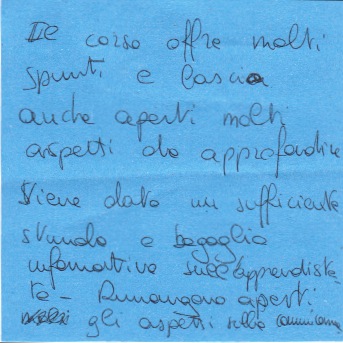 Il corso offre molti
spunti e lascia
anche aperti molti
aspetti da approfondire
Viene dato un sufficiente
stimolo e bagaglio
informativo sull'apprendista-
to - Rimangono aperti
gli aspetti sulla